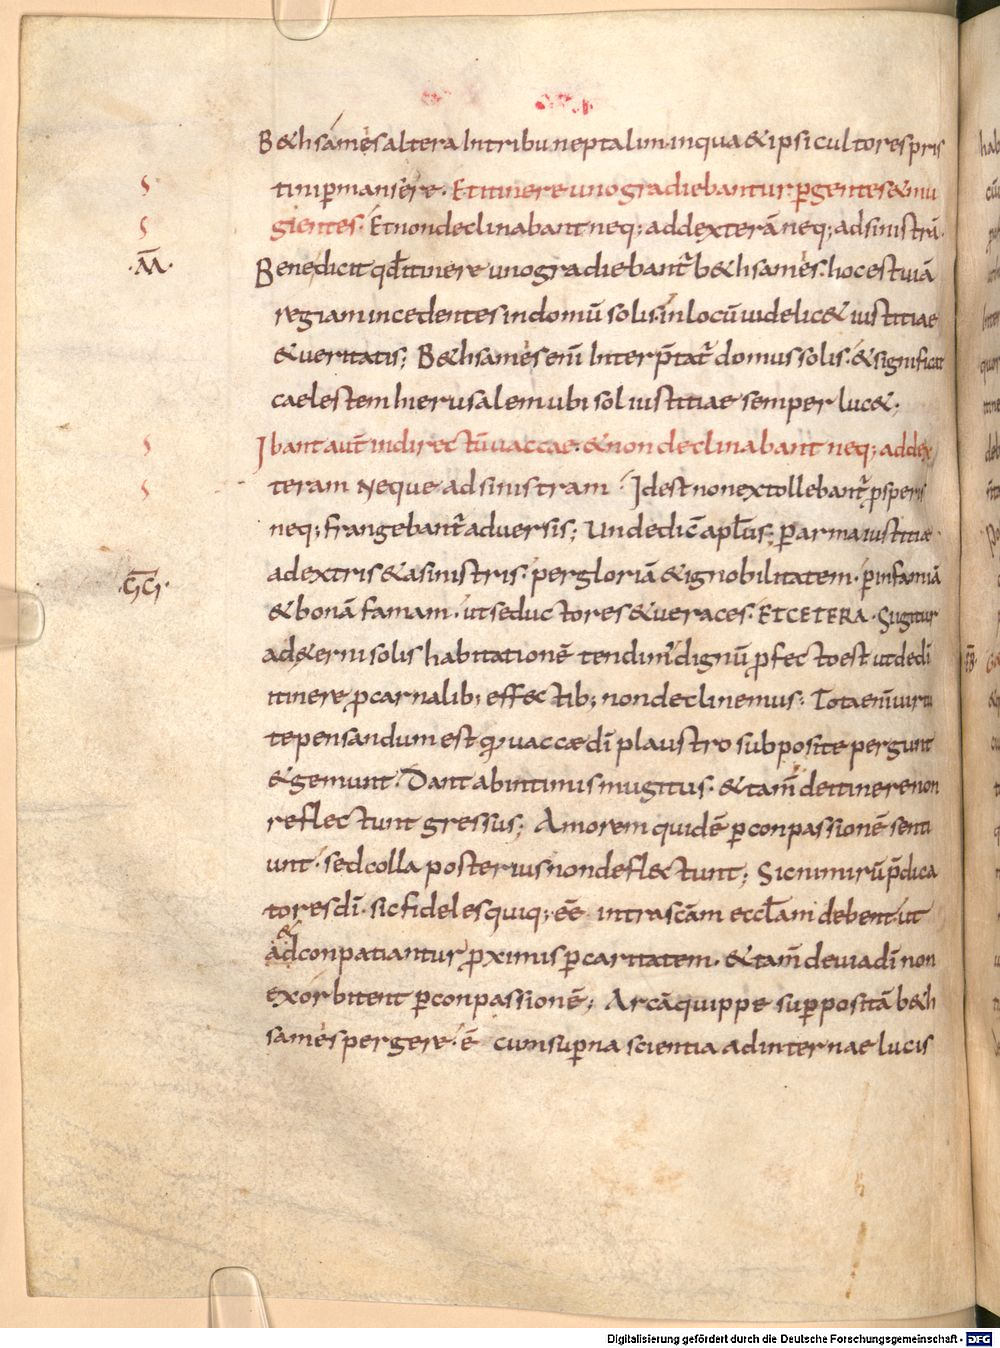 B&hsamès altera In tribu neptalim. in qua & ipsi cultores pris
tini pmansère. Et itinere uno gradiebantur. pgentes & mu
gientes. Et non declinabant neq; ad dexterā neq; ad sinistrā.
.M̄. Benedicit qđ itinere uno gradiebant̄ b&hsamès. hoc est uiā
regiam incedentes in domū solis. in locū uidelic& iustitiae
& ueritatis; B&hsamès eni̅ Interp̄tat̄ domus solis. & significat
caelestem hierusalem ubi sol iustitiae semper luc&.
Ibant aut̄ in directū uaccae. & non declinabant neq; ad dex
teram Neque ad sinistram. Idest non extollebant̄ psperis
neq; frangebant̄ aduersis; Unde dic̄ apl̄us; Per arma iustitiae
.ḠḠ. a dextris & a sinistris. per gloriā & ignobilitatem. p infamiā
& bonā famam. ut seductores & ueraces. ETCETERA. Si igitur
ad &erni solis habitationē tendim' dignū pfecto est ut de dī
itinere p carnalib; effectib; non declinemus; Tota eni̅ uirtu
te pensandum est qđ uaccæ dī plaustro subposite pergunt
& gemunt. Dant ab intimis mugitus. & tam̄ de itinere non
reflectunt gressus; Amorem quidē p conpassionē senti
unt. sed colla posterius non deflectunt; Sic nimirū p̄dica
tores dī. sic fideles quiq; ēē intra scām eccl̄am debent. ut
&
ad conpatiantur pximis p caritatem. & tam̄ de uia dī non
exorbitent p conpassionē; Arcā quippe supposita̅ b&h
samès pergere. ē cum supna scientia ad internae lucis
Digitalisierung gefördert durch die Deutsche Forschungsgemeinschaft - DFG